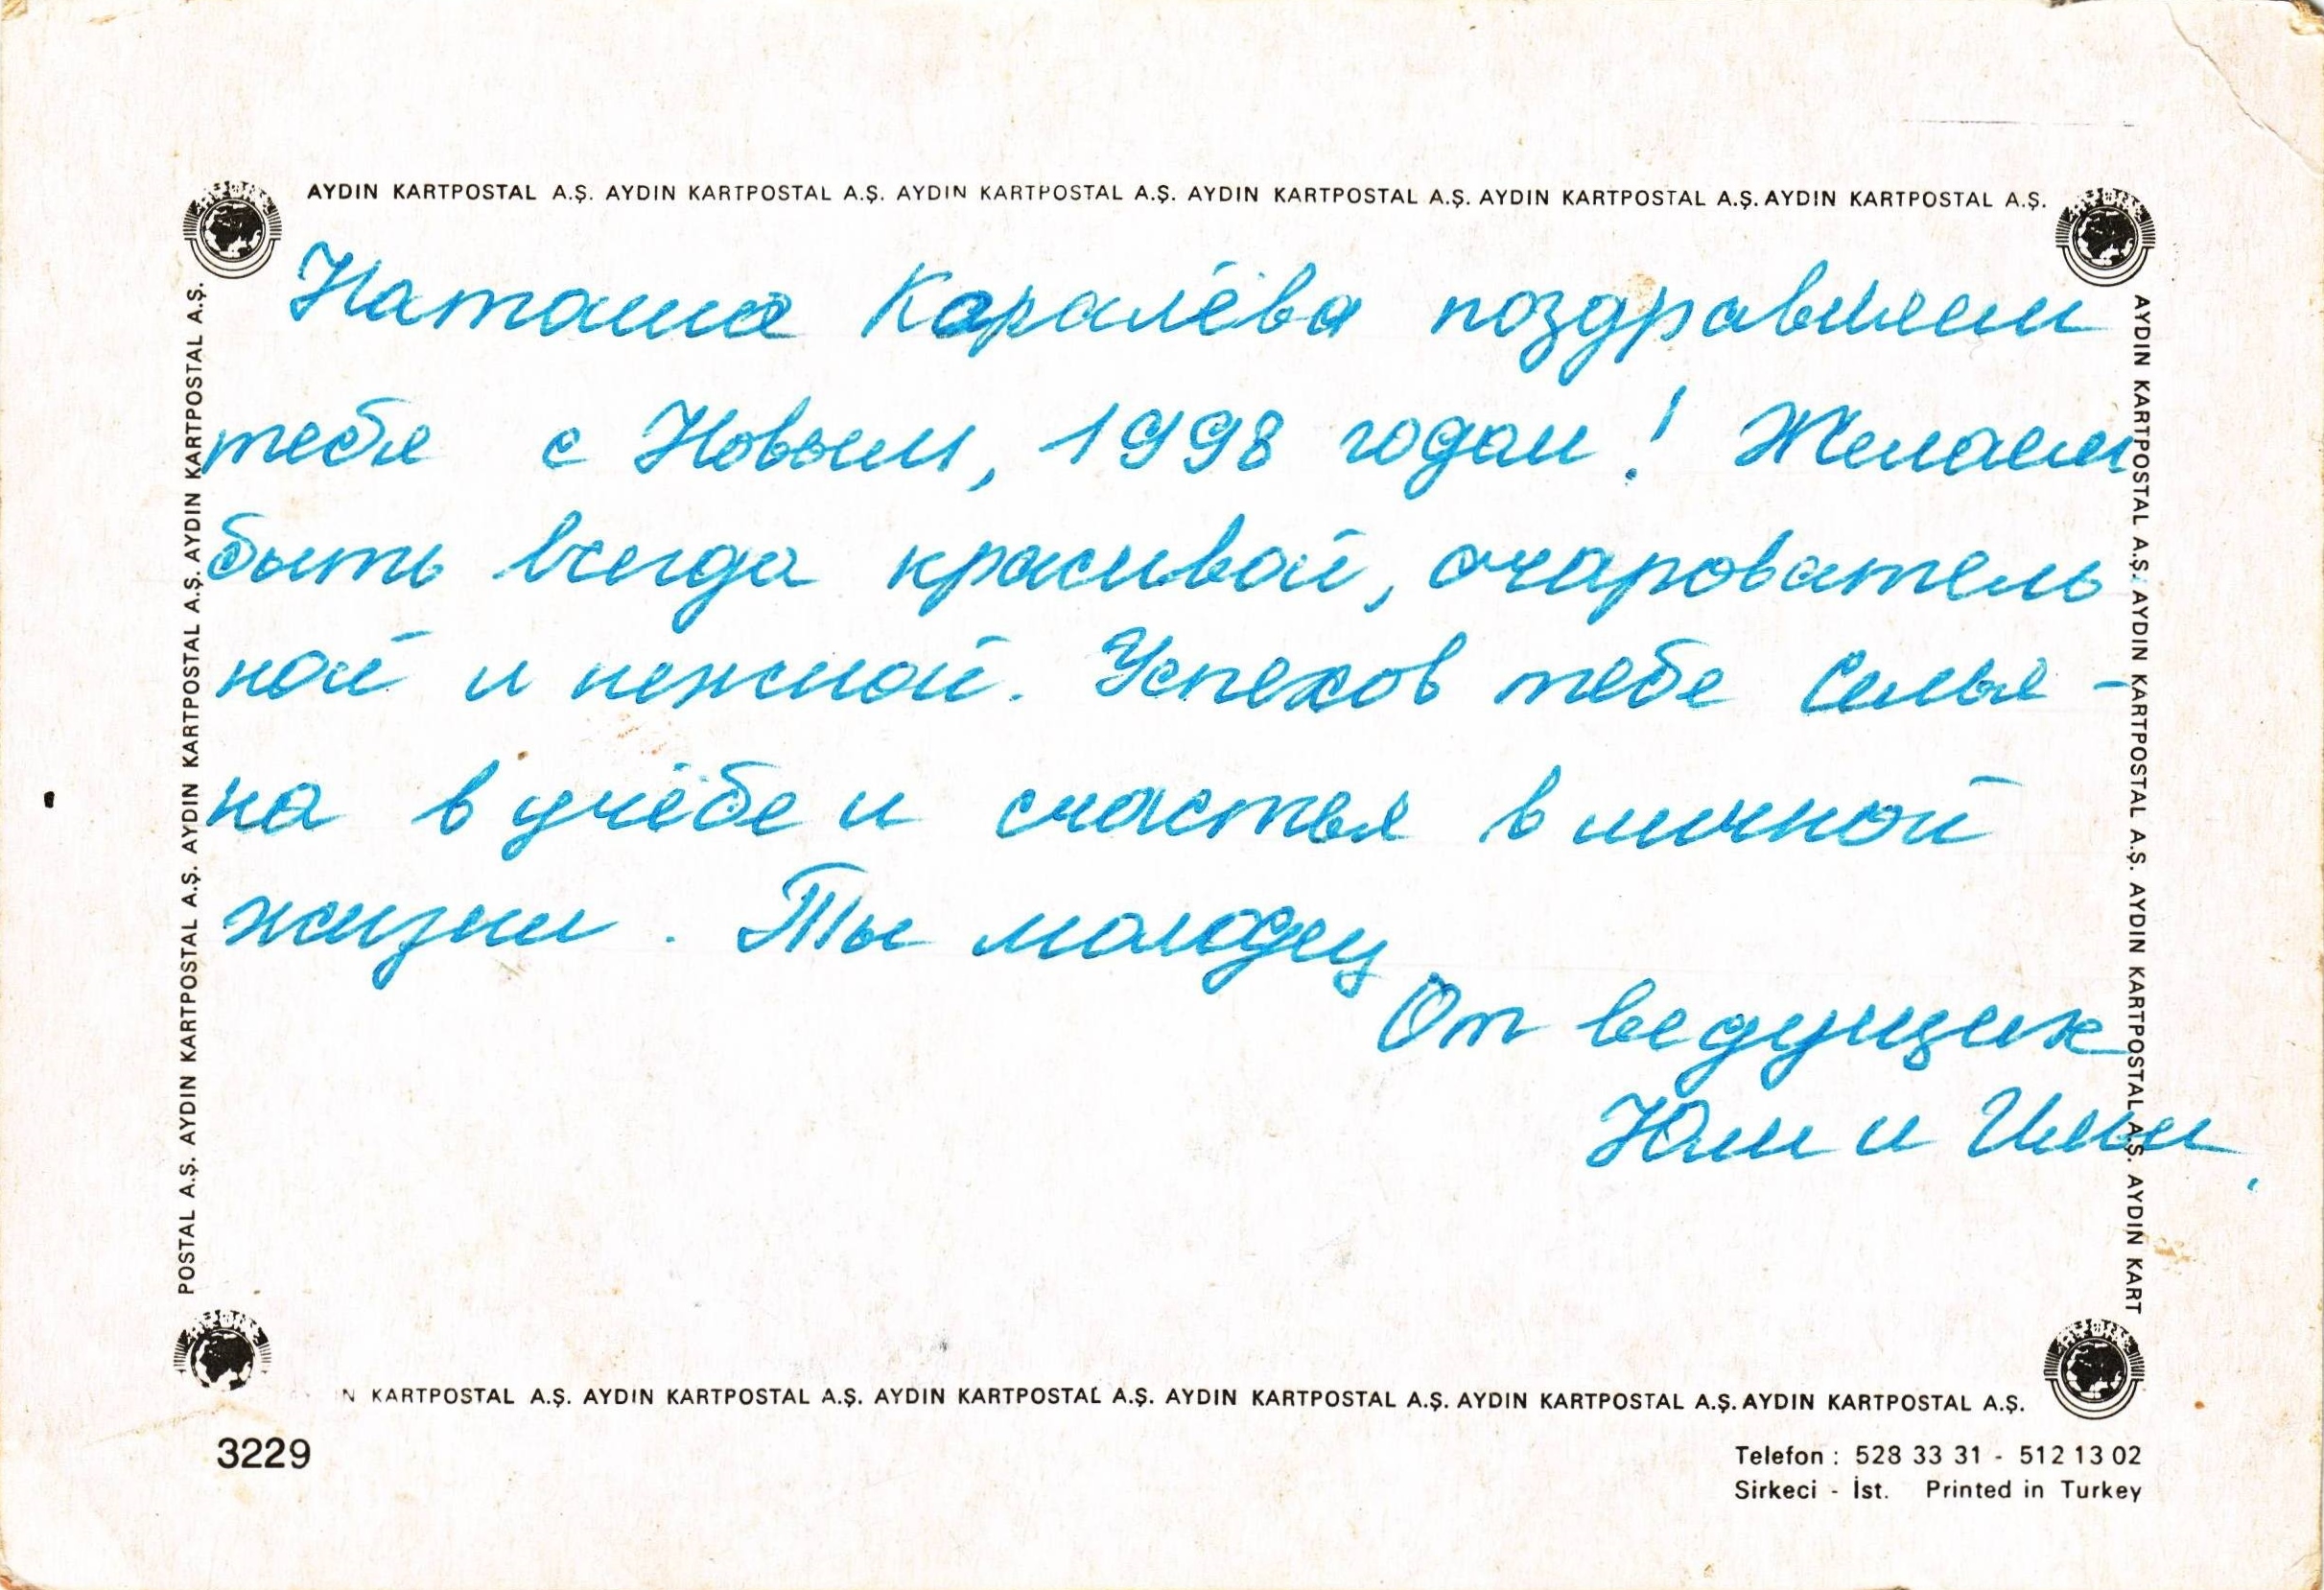 AYDIN KARTPOSTAL A.Ş. AYDIN KARTPOSTAL A.Ş. AYDIN KARTPOSTAL A.Ş. AYDIN KARTPOSTAL A.Ş. AYDIN KARTPOSTAL A.Ş. AYDIN KARTPOSTAL A.Ş.
Наташа Каралёва поздравляем
тебя с Новым, 1998 годом! Желаем
быть всегда красивой, очарователь
ной и нежной. Успехов тебе
на в учёбе и счастья в личной
жизни. Ты молодец
От ведущих
Юли и
POSTAL A.Ş. AYDIN KARTPOSTAL A.Ş. AYDIN KARTPOSTAL A.Ş. AYDIN KARTPOSTAL A.Ş. AYDIN KARTPOSTAL A.Ş.
AYDIN KARTPOSTAL A.Ş. AYDIN KARTPOSTAL A.Ş. AYDIN KARTPOSTAL A.Ş. AYDIN KART
N KARTPOSTAL A.Ş. AYDIN KARTPOSTAL A.Ş. AYDIN KARTPOSTAL A.Ş. AYDIN KARTPOSTAL A.Ş. AYDIN KARTPOSTAL A.Ş. AYDIN KARTPOSTAL A.Ş.
3229
Telefon : 528 33 31 - 512 13 02
Sirkeci - İst. Printed in Turkey